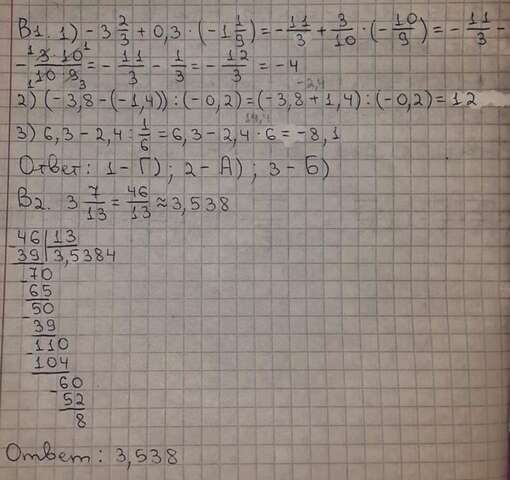 В1. 1) -3 2/3 + 0,3 · (-1 1/9) = -11/3 + 3/10 · (-10/9) = -11/3 -
- 3 · 10 / 10 · 9 = -11/3 - 1/3 = -12/3 = -4
-2,4
2) (-3,8 - (-1,4)) : (-0,2) = (-3,8 + 1,4) : (-0,2) = 12
14,4
3) 6,3 - 2,4 : 1/6 = 6,3 - 2,4 · 6 = -8,1
Ответ: 1 - Г) ; 2 - А) ; 3 - Б)
В2. 3 7/13 = 46/13 ≈ 3,538
46 | 13
39 | 3,5384
70
65
50
39
110
104
60
52
8
Ответ: 3,538